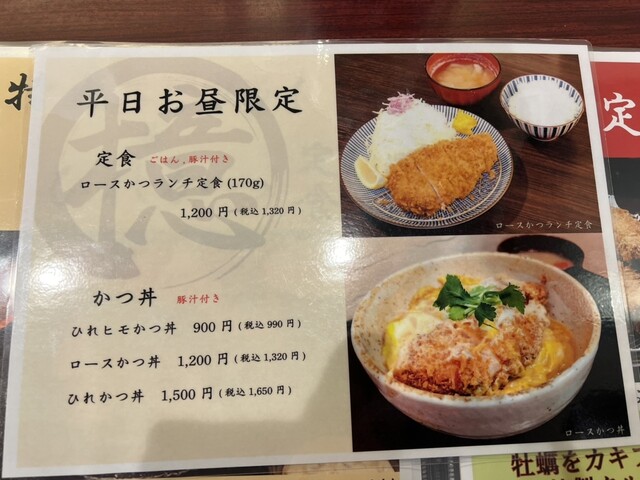 平日お昼限定
定食 ごはん、豚汁付き
ロースかつランチ定食(170g)
1,200 円 (税込 1,320 円)
かつ丼 豚汁付き
ひれヒモかつ丼 900 円 (税込 990 円)
ロースかつ丼 1,200 円 (税込 1,320 円)
ひれかつ丼 1,500 円 (税込 1,650 円)
ロースかつランチ定食
ロースかつ丼
定
牡蠣をカキフ